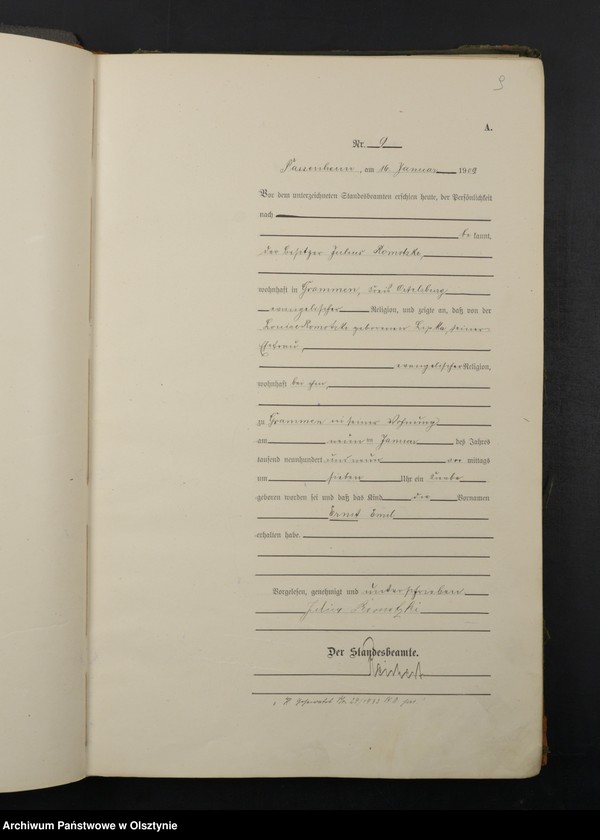 9
A.
Nr. 9
Passenheim, am 14 Januar 1909
Vor dem unterzeichneten Standesbeamten erschien heute, der Persönlichkeit
nach
be kannt,
der Besitzer Julius Romotzke,
wohnhaft in Grammen, Kreis Ortelsburg
evangelischer Religion, und zeigte an, daß von der
Romotzke geborenen Lipka, seiner
Ehefrau,
evangelischer Religion,
wohnhaft bei ihm,
zu Grammen in seiner Wohnung
am neunten Januar des Jahres
tausend neunhundert und neun vor mittags
um sieben Uhr ein Knabe
geboren worden sei und daß das Kind die Vornamen
Ernst Emil
erhalten habe.
Vorgelesen, genehmigt und unterschrieben
Julius Romotzki
Der Standesbeamte.
Archiwum Państwowe w Olsztynie